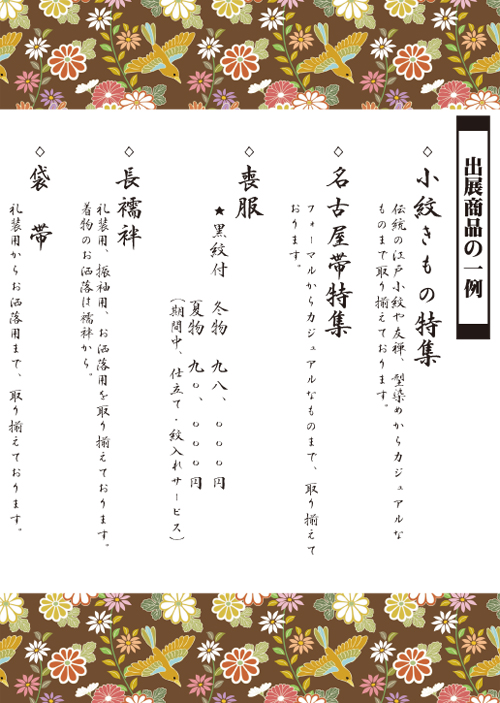 出展商品の一例
◇小紋きもの特集
伝統の江戸小紋や友禅、型染めからカジュアルな
ものまで取り揃えております。
◇名古屋帯特集
フォーマルからカジュアルなものまで、取り揃えて
おります。
◇喪服
★黒紋付 冬物 九八、〇〇〇円
夏物 九〇、〇〇〇円
(期間中、仕立て・紋入れサービス)
◇長襦袢
礼装用、振袖用、お洒落用を取り揃えております。
着物のお洒落は襦袢から。
◇袋 帯
礼装用からお洒落用まで、取り揃えております。